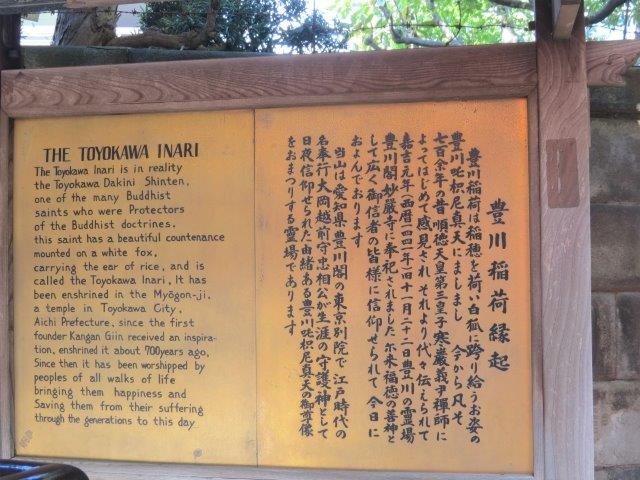 THE TOYOKAWA INARI
The Toyokawa Inari is in reality
the Toyokawa Dakini Shinten,
one of the many Buddhist
saints who were Protectors
of the Buddhist doctrines.
this saint has a beautiful countenance
mounted on a white fox,
carrying the ear of rice, and is
called the Toyokawa Inari, It has
been enshrined in the Myōgon-ji,
a temple in Toyokawa City,
Aichi Prefecture, since the first
founder Kangan Giin received an inspira-
tion, enshrined it about 700years ago,
Since then it has been worshipped by
peoples of all walks of life
bringing them happiness and
Saving them from their suffering
through the generations to this day
豊川稲荷縁起
豊川稲荷は稲穂を荷い白狐に跨り給うお姿の
豊川吒枳尼真天にましまし 今から凡そ
七百余年の昔 順徳天皇第三皇子寒巌義尹禅師に
よってはじめて感見され それより代々伝えられて
嘉吉元年(西暦一四四一年)四十一月二十二日豊川の霊場
豊川閣妙厳寺に奉祀されました 尓来福徳の善神と
して広く御信者の皆様に信仰せられて 今日に
およんでおります
当山は愛知県豊川閣の東京別院で 江戸時代の
名奉行大岡越前守忠相公が生涯の守護神として
日夜信仰せられた由緒ある豊川吒枳尼真天の御尊像
をおまつりする霊場であります